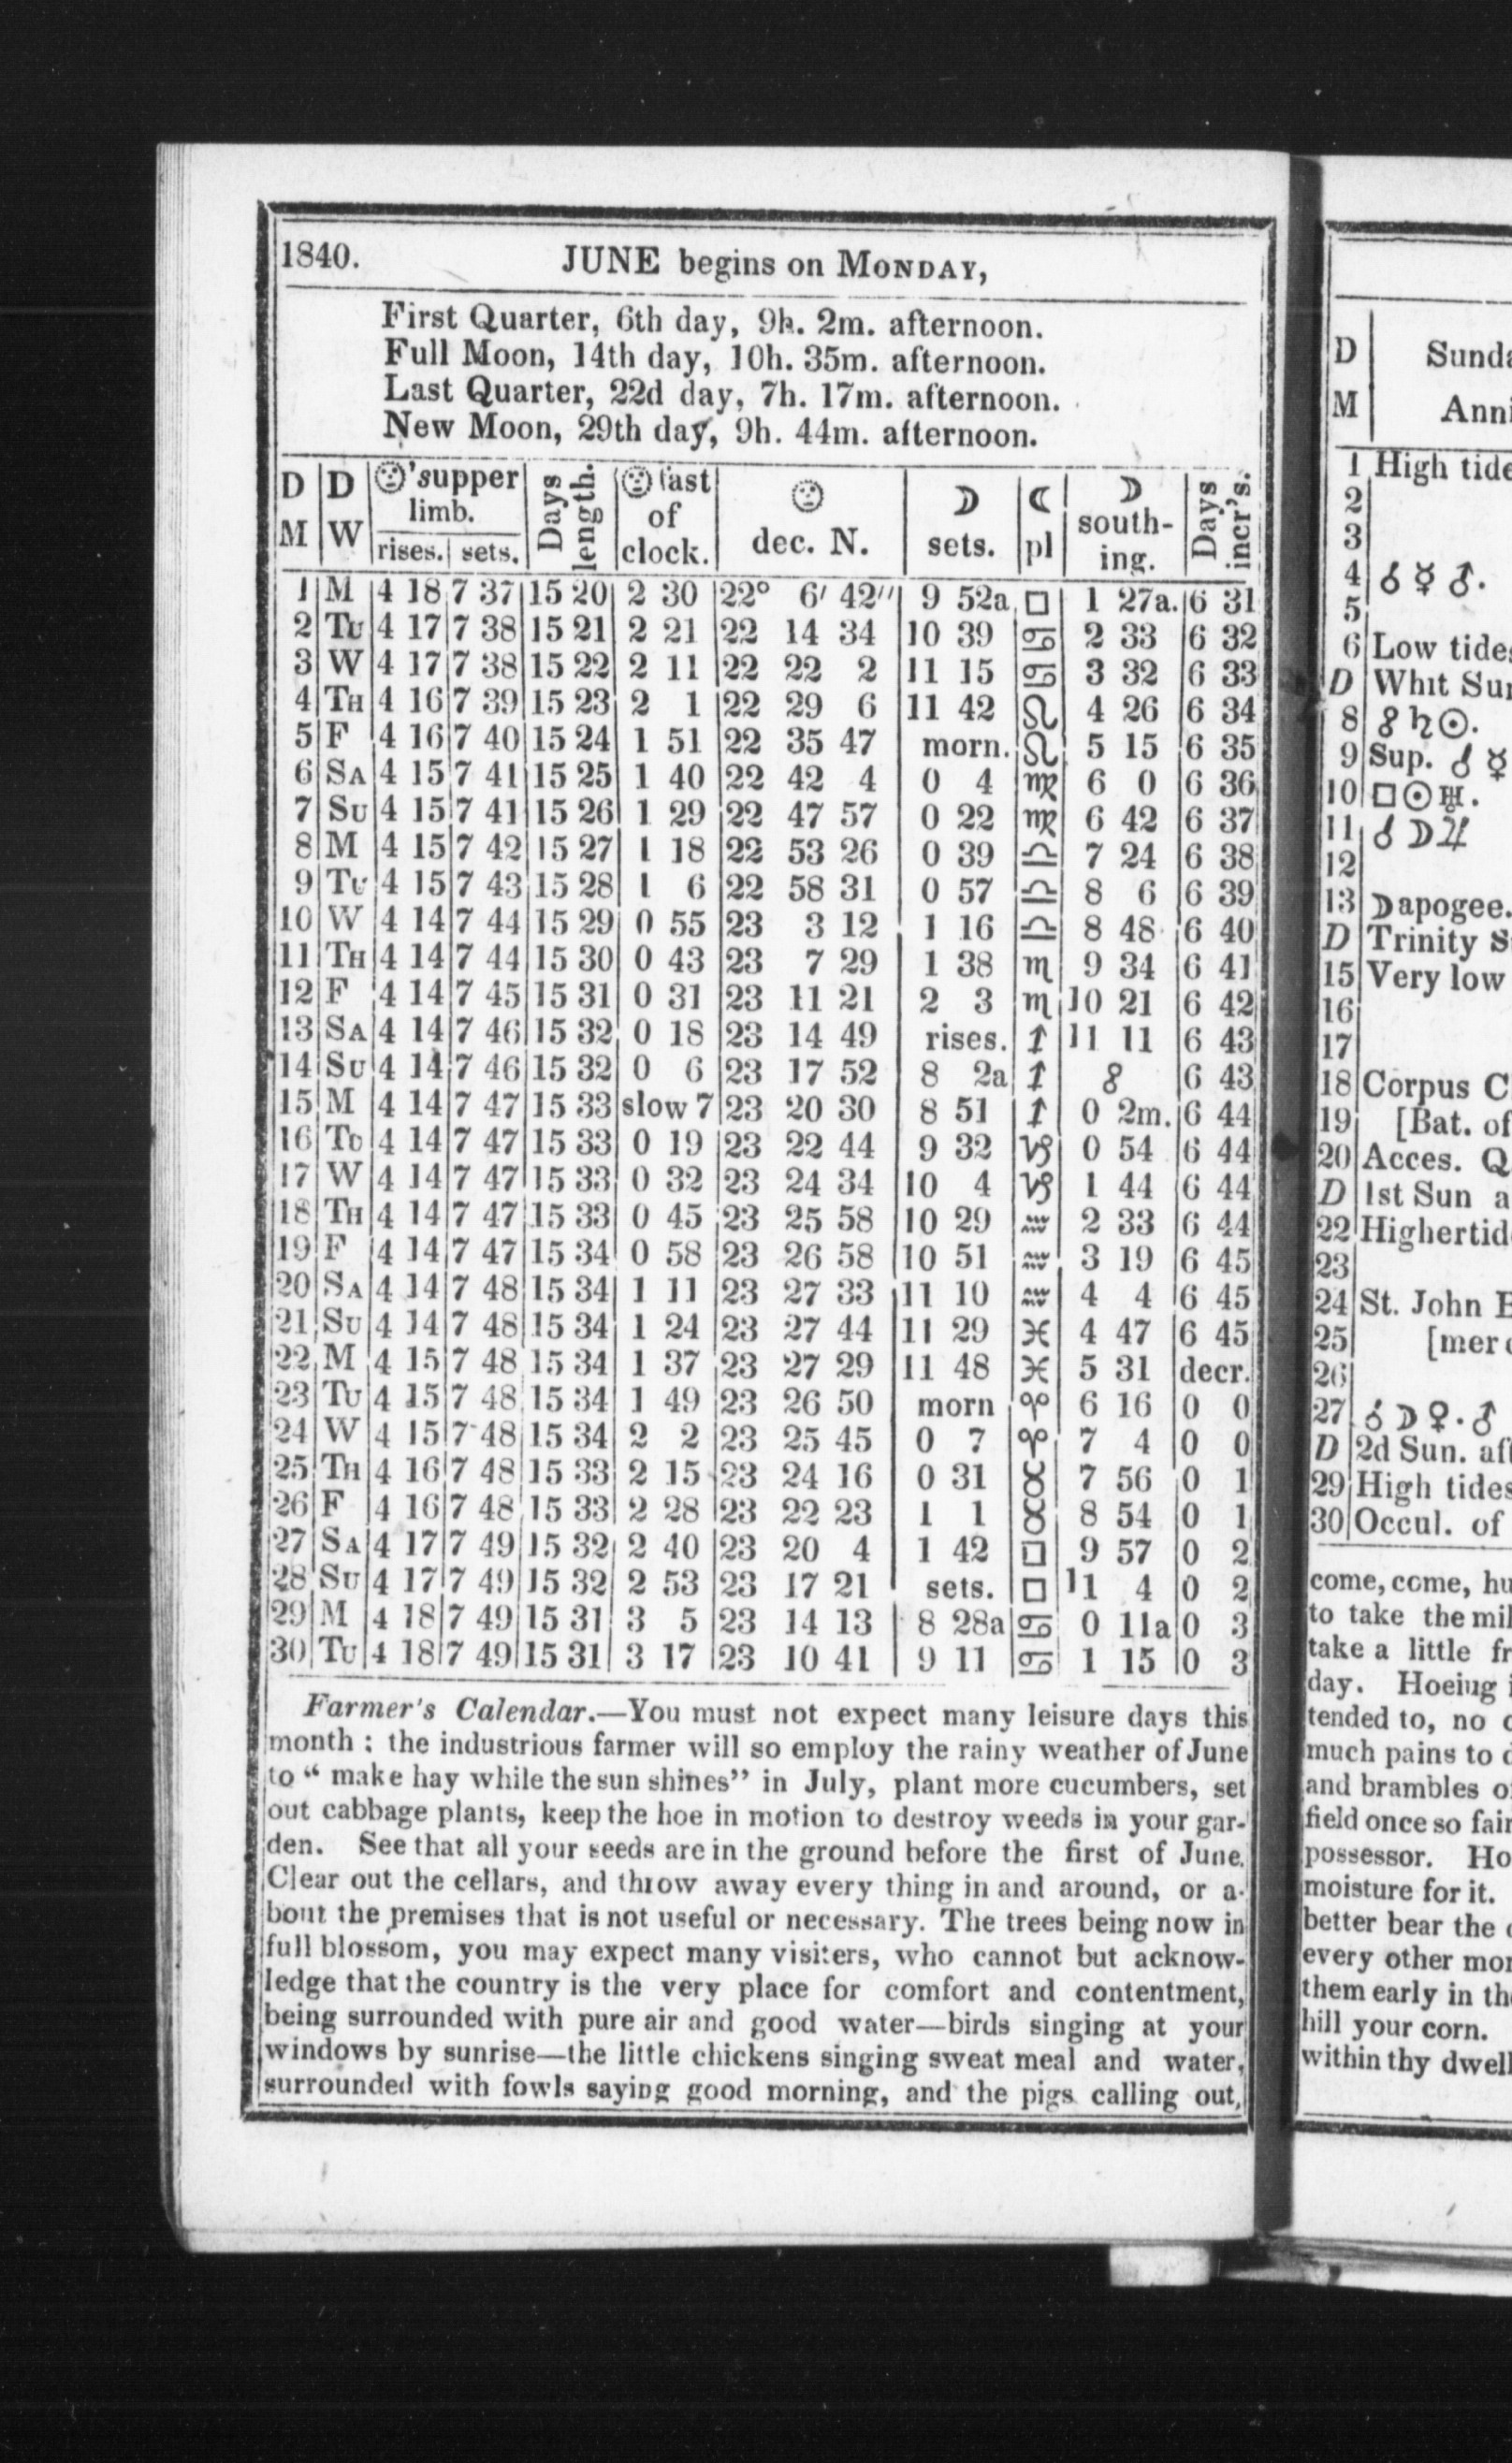 1840. JUNE begins on MONDAY,
First Quarter, 6th day, 9h. 2m. afternoon.
Full Moon, 14th day, 10h. 35m. afternoon.
Last Quarter, 22d day, 7h. 17m. afternoon.
New Moon, 29th day, 9h. 44m. afternoon.
D M | D W | ☉'s upper limb. rises. | sets. | Days length. | ☉ fast of clock. | ☉ dec. N. | ☽ sets. | ☾ pl | ☽ south-ing. | Days incr's.
1 M 4 18 7 37 15 20 2 30 22° 6′ 42″ 9 52a □ 1 27a. 6 31
2 TU 4 17 7 38 15 21 2 21 22 14 34 10 39 ♋ 2 33 6 32
3 W 4 17 7 38 15 22 2 11 22 22 2 11 15 ♋ 3 32 6 33
4 TH 4 16 7 39 15 23 2 1 22 29 6 11 42 ♌ 4 26 6 34
5 F 4 16 7 40 15 24 1 51 22 35 47 morn. ♌ 5 15 6 35
6 SA 4 15 7 41 15 25 1 40 22 42 4 0 4 ♍ 6 0 6 36
7 SU 4 15 7 41 15 26 1 29 22 47 57 0 22 ♍ 6 42 6 37
8 M 4 15 7 42 15 27 1 18 22 53 26 0 39 ♎ 7 24 6 38
9 TU 4 15 7 43 15 28 1 6 22 58 31 0 57 ♎ 8 6 6 39
10 W 4 14 7 44 15 29 0 55 23 3 12 1 16 ♎ 8 48 6 40
11 TH 4 14 7 44 15 30 0 43 23 7 29 1 38 ♏ 9 34 6 41
12 F 4 14 7 45 15 31 0 31 23 11 21 2 3 ♏ 10 21 6 42
13 SA 4 14 7 46 15 32 0 18 23 14 49 rises. ♐ 11 11 6 43
14 SU 4 14 7 46 15 32 0 6 23 17 52 8 2a ♐ ☍ 6 43
15 M 4 14 7 47 15 33 slow 7 23 20 30 8 51 ♐ 0 2m. 6 44
16 TU 4 14 7 47 15 33 0 19 23 22 44 9 32 ♑ 0 54 6 44
17 W 4 14 7 47 15 33 0 32 23 24 34 10 4 ♑ 1 44 6 44
18 TH 4 14 7 47 15 33 0 45 23 25 58 10 29 ♒ 2 33 6 44
19 F 4 14 7 47 15 34 0 58 23 26 58 10 51 ♒ 3 19 6 45
20 SA 4 14 7 48 15 34 1 11 23 27 33 11 10 ♒ 4 4 6 45
21 SU 4 14 7 48 15 34 1 24 23 27 44 11 29 ♓ 4 47 6 45
22 M 4 15 7 48 15 34 1 37 23 27 29 11 48 ♓ 5 31 decr.
23 TU 4 15 7 48 15 34 1 49 23 26 50 morn ♈ 6 16 0 0
24 W 4 15 7 48 15 34 2 2 23 25 45 0 7 ♈ 7 4 0 0
25 TH 4 16 7 48 15 33 2 15 23 24 16 0 31 ♉ 7 56 0 1
26 F 4 16 7 48 15 33 2 28 23 22 23 1 1 ♉ 8 54 0 1
27 SA 4 17 7 49 15 32 2 40 23 20 4 1 42 □ 9 57 0 2
28 SU 4 17 7 49 15 32 2 53 23 17 21 sets. □ 11 4 0 2
29 M 4 18 7 49 15 31 3 5 23 14 13 8 28a ♋ 0 11a 0 3
30 TU 4 18 7 49 15 31 3 17 23 10 41 9 11 ♋ 1 15 0 3
Farmer's Calendar.—You must not expect many leisure days this
month: the industrious farmer will so employ the rainy weather of June
to "make hay while the sun shines" in July, plant more cucumbers, set
out cabbage plants, keep the hoe in motion to destroy weeds in your gar-
den. See that all your seeds are in the ground before the first of June.
Clear out the cellars, and throw away every thing in and around, or a-
bout the premises that is not useful or necessary. The trees being now in
full blossom, you may expect many visiters, who cannot but acknow-
ledge that the country is the very place for comfort and contentment,
being surrounded with pure air and good water—birds singing at your
windows by sunrise—the little chickens singing sweat meal and water,
surrounded with fowls saying good morning, and the pigs calling out,
D M Sunda
Anni
1 High tide
2
3
4 ☌ ☿ ♂.
5
6 Low tides
D Whit Sun
8 ☍ ♄ ☉.
9 Sup. ☌ ☿
10 □ ☉ ♅.
11 ☌ ☽ ♃
12
13 ☽ apogee.
D Trinity S
15 Very low
16
17
18 Corpus C
19 [Bat. of
20 Acces. Q
D 1st Sun a
22 Higher tid
23
24 St. John B
25 [mer
26
27 ☌ ☽ ♀. ♂
D 2d Sun. aft
29 High tides
30 Occul. of
come, come, hu
to take the mil
take a little fr
day. Hoeiug i
tended to, no
much pains to
and brambles o
field once so fair
possessor. Ho
moisture for it.
better bear the
every other mor
them early in th
hill your corn.
within thy dwell